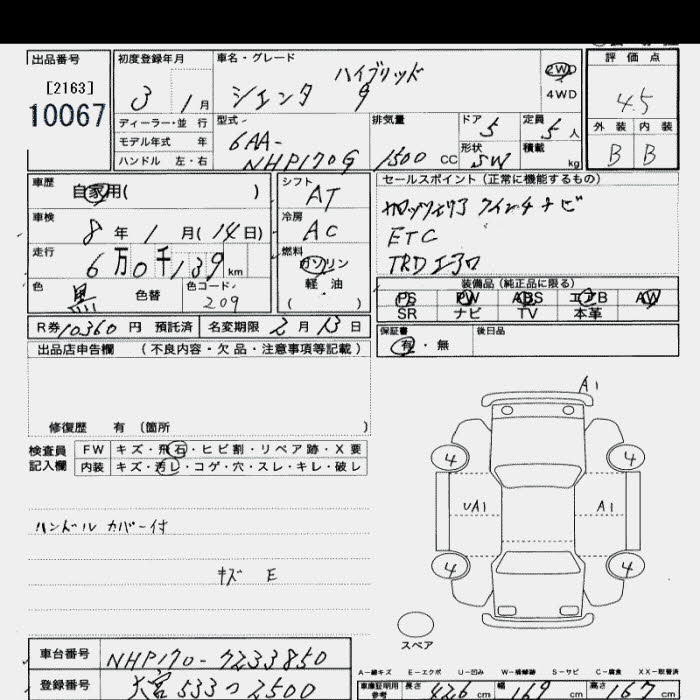 出品番号
[2163]
10067
初度登録年月
3 1月
ディーラー・並行
モデル年式 年
ハンドル 左・右
車名・グレード
ハイブリッド
シエンタ G
2WD
4WD
型式
6AA-
NHP170G
排気量
1500 CC
ドア 5
形状 SW
定員 5 人
積載 kg
評価点
4.5
外装 内装
B B
車歴
自家用( )
車検
8 年 1 月(14日)
走行
6万0千139 km
色 黒 色替
色コード
209
シフト
AT
冷房
AC
燃料
ガソリン
軽油
( )
セールスポイント(正常に機能するもの)
カロッツェリア 7インチナビ
ETC
TRDエアロ
装備品(純正品に限る)
PS PW ABS エアB AW
SR ナビ TV 本革
R券 10360 円 預託済 名変期限 2月13日
保証書
有・無
後日品
出品店申告欄 (不良内容・欠品・注意事項等記載)
修復歴 有 (箇所 )
検査員
記入欄
FW キズ・飛石・ヒビ割・リペア跡・X要
内装 キズ・汚レ・コゲ・穴・スレ・キレ・破レ
ハンドル カバー付
キズ E
A1
4 4
UA1 A1
4 4
スペア
車台番号 NHP170-7233850
登録番号 大宮 533 つ 2500
A-線キズ E-エクボ U-凹み W-補修跡 S-サビ C-腐食 XX-取替済
車庫証明用
参考
長さ 426 cm 幅 169 cm 高さ 167 cm